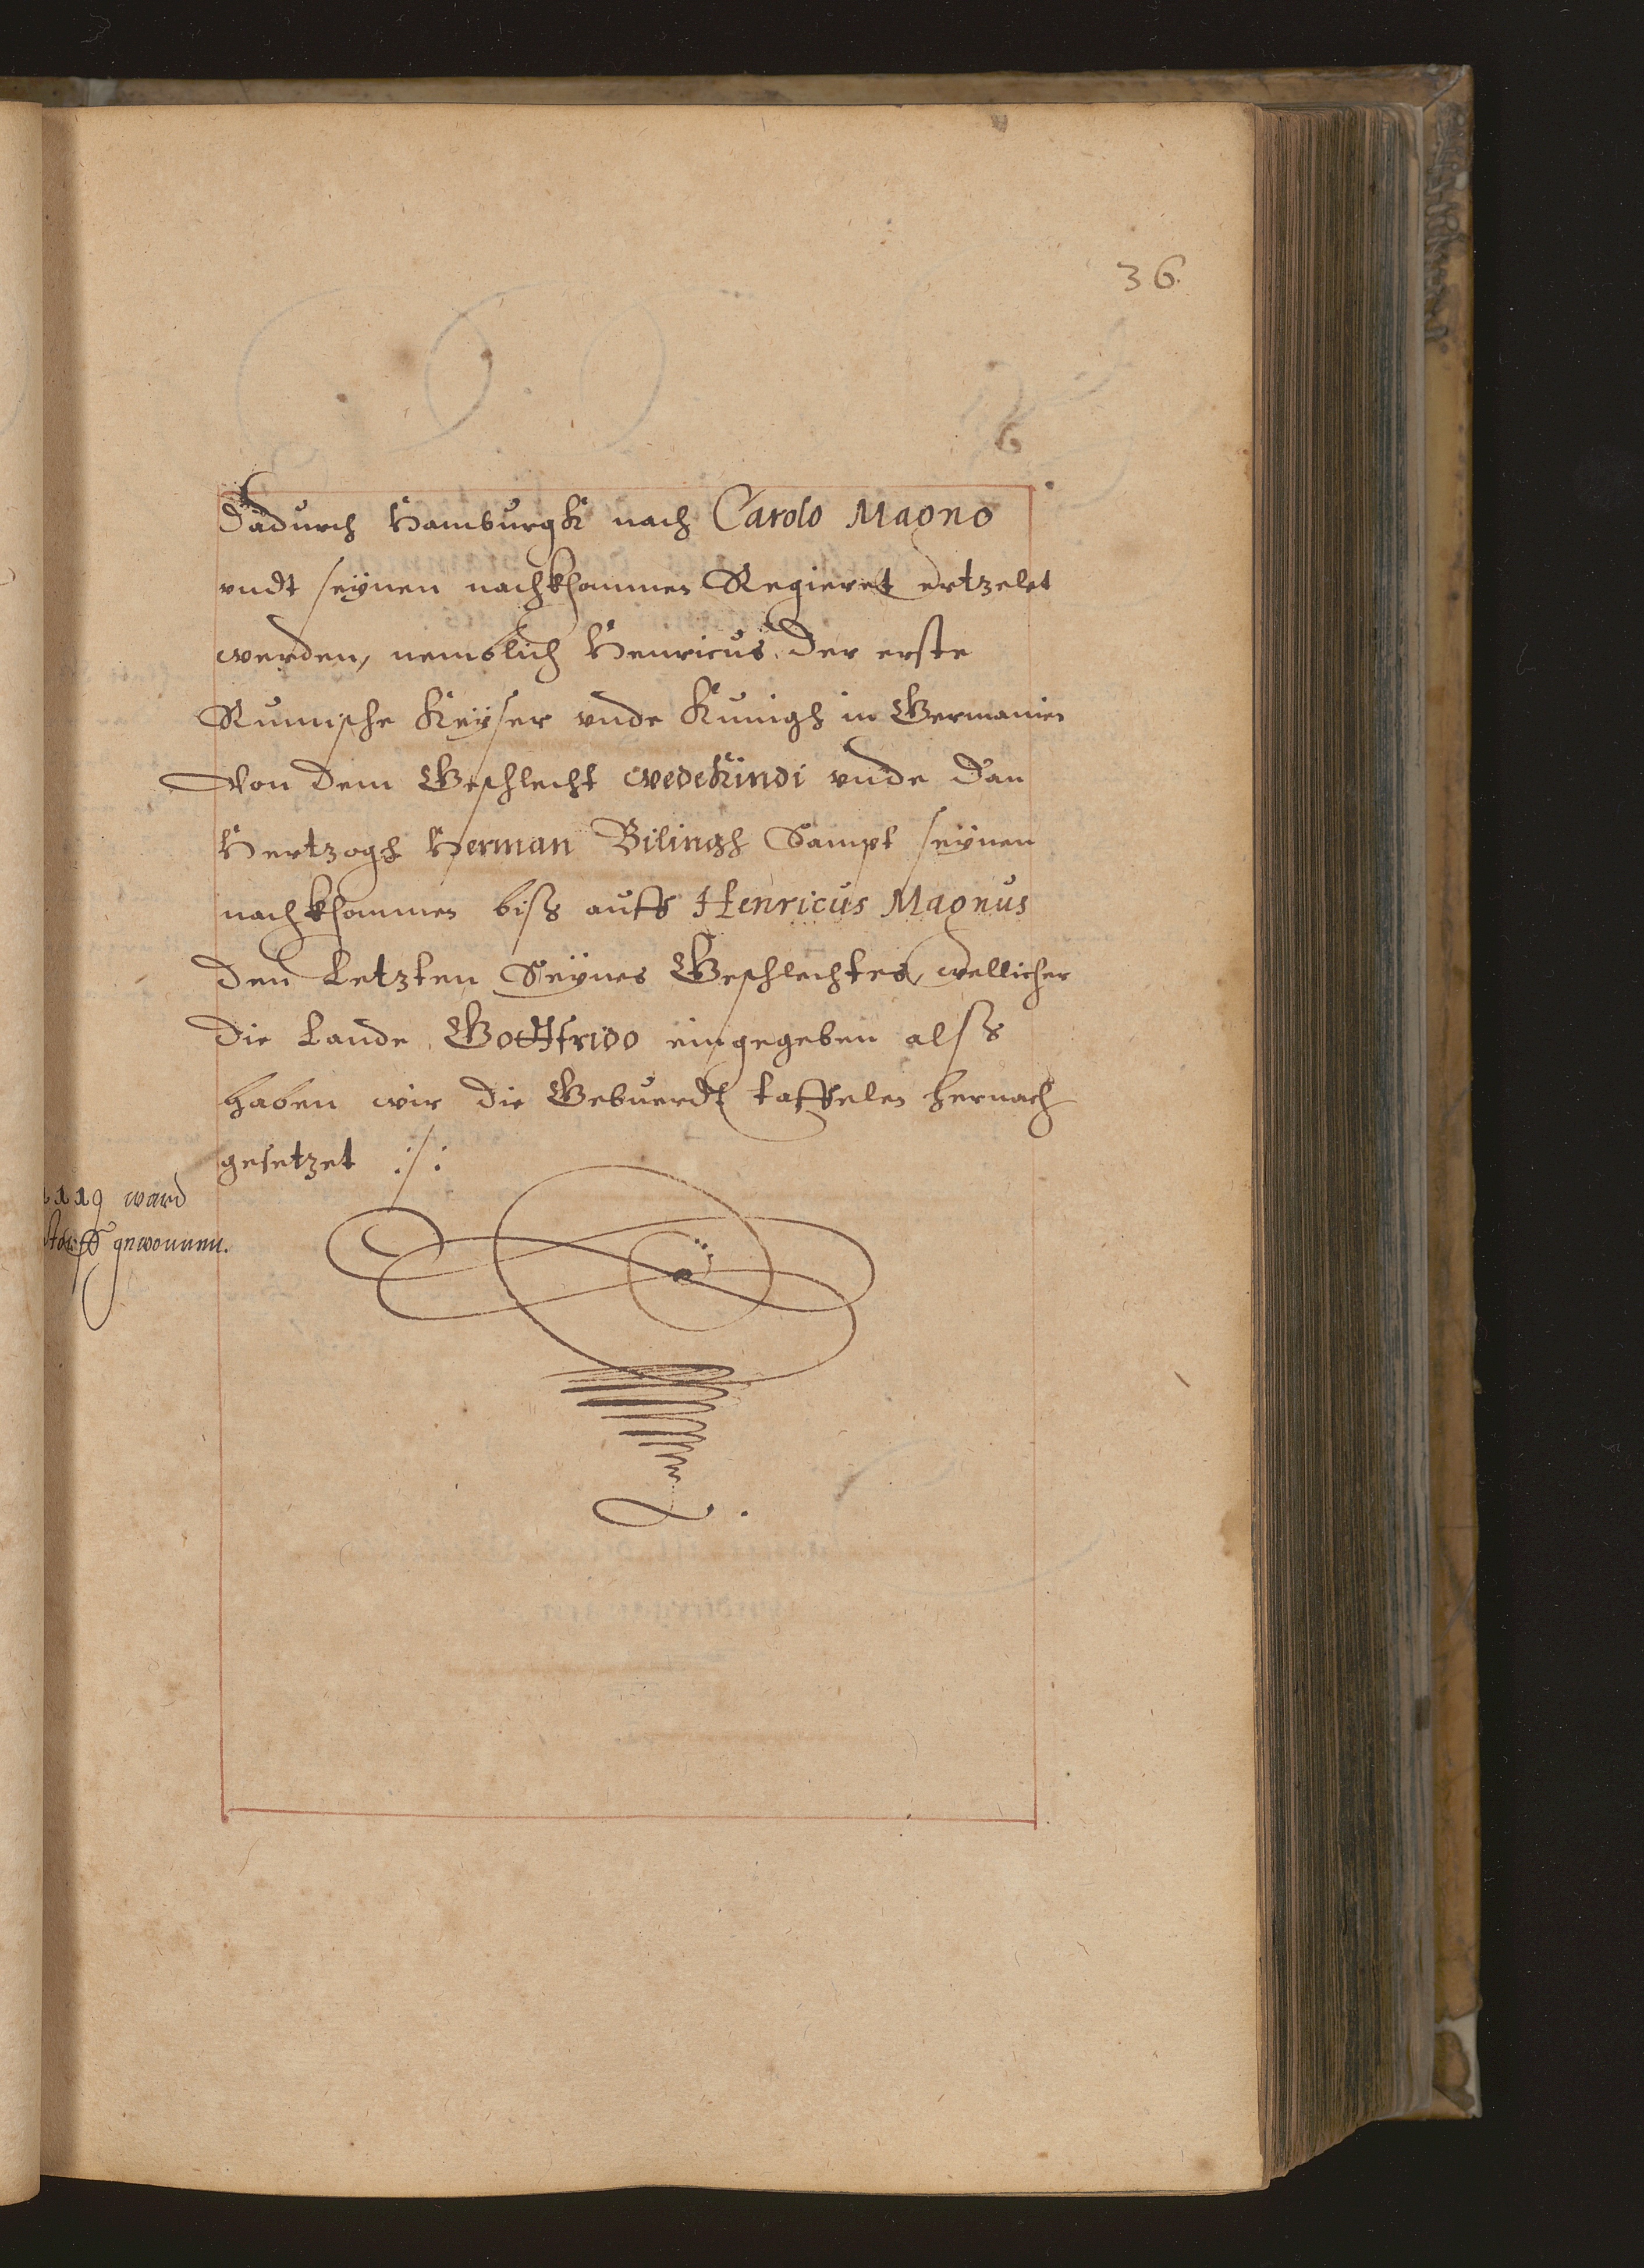 36.
6
Dadurch Hamburgk nach Carolo Magno
vndt seynen nachkhommen Regieret ertzelet
werden, nemblich Henricus der erste
Rumische Keyser vnde Kunigh in Germanien
Von dem Geschlecht wedekindi vnde dan
Hertzogh Herman Bilingh Sampt seynen
nachkhommen biss auff Henricus Magnus
den Letzten Seynes Geschlechtes, wellicher
die Lande Gottfrido eingegeben alss
haben wir die Gebuerdt taffelen hernach
gesetzet :/:
1119 ward
gewonnen.